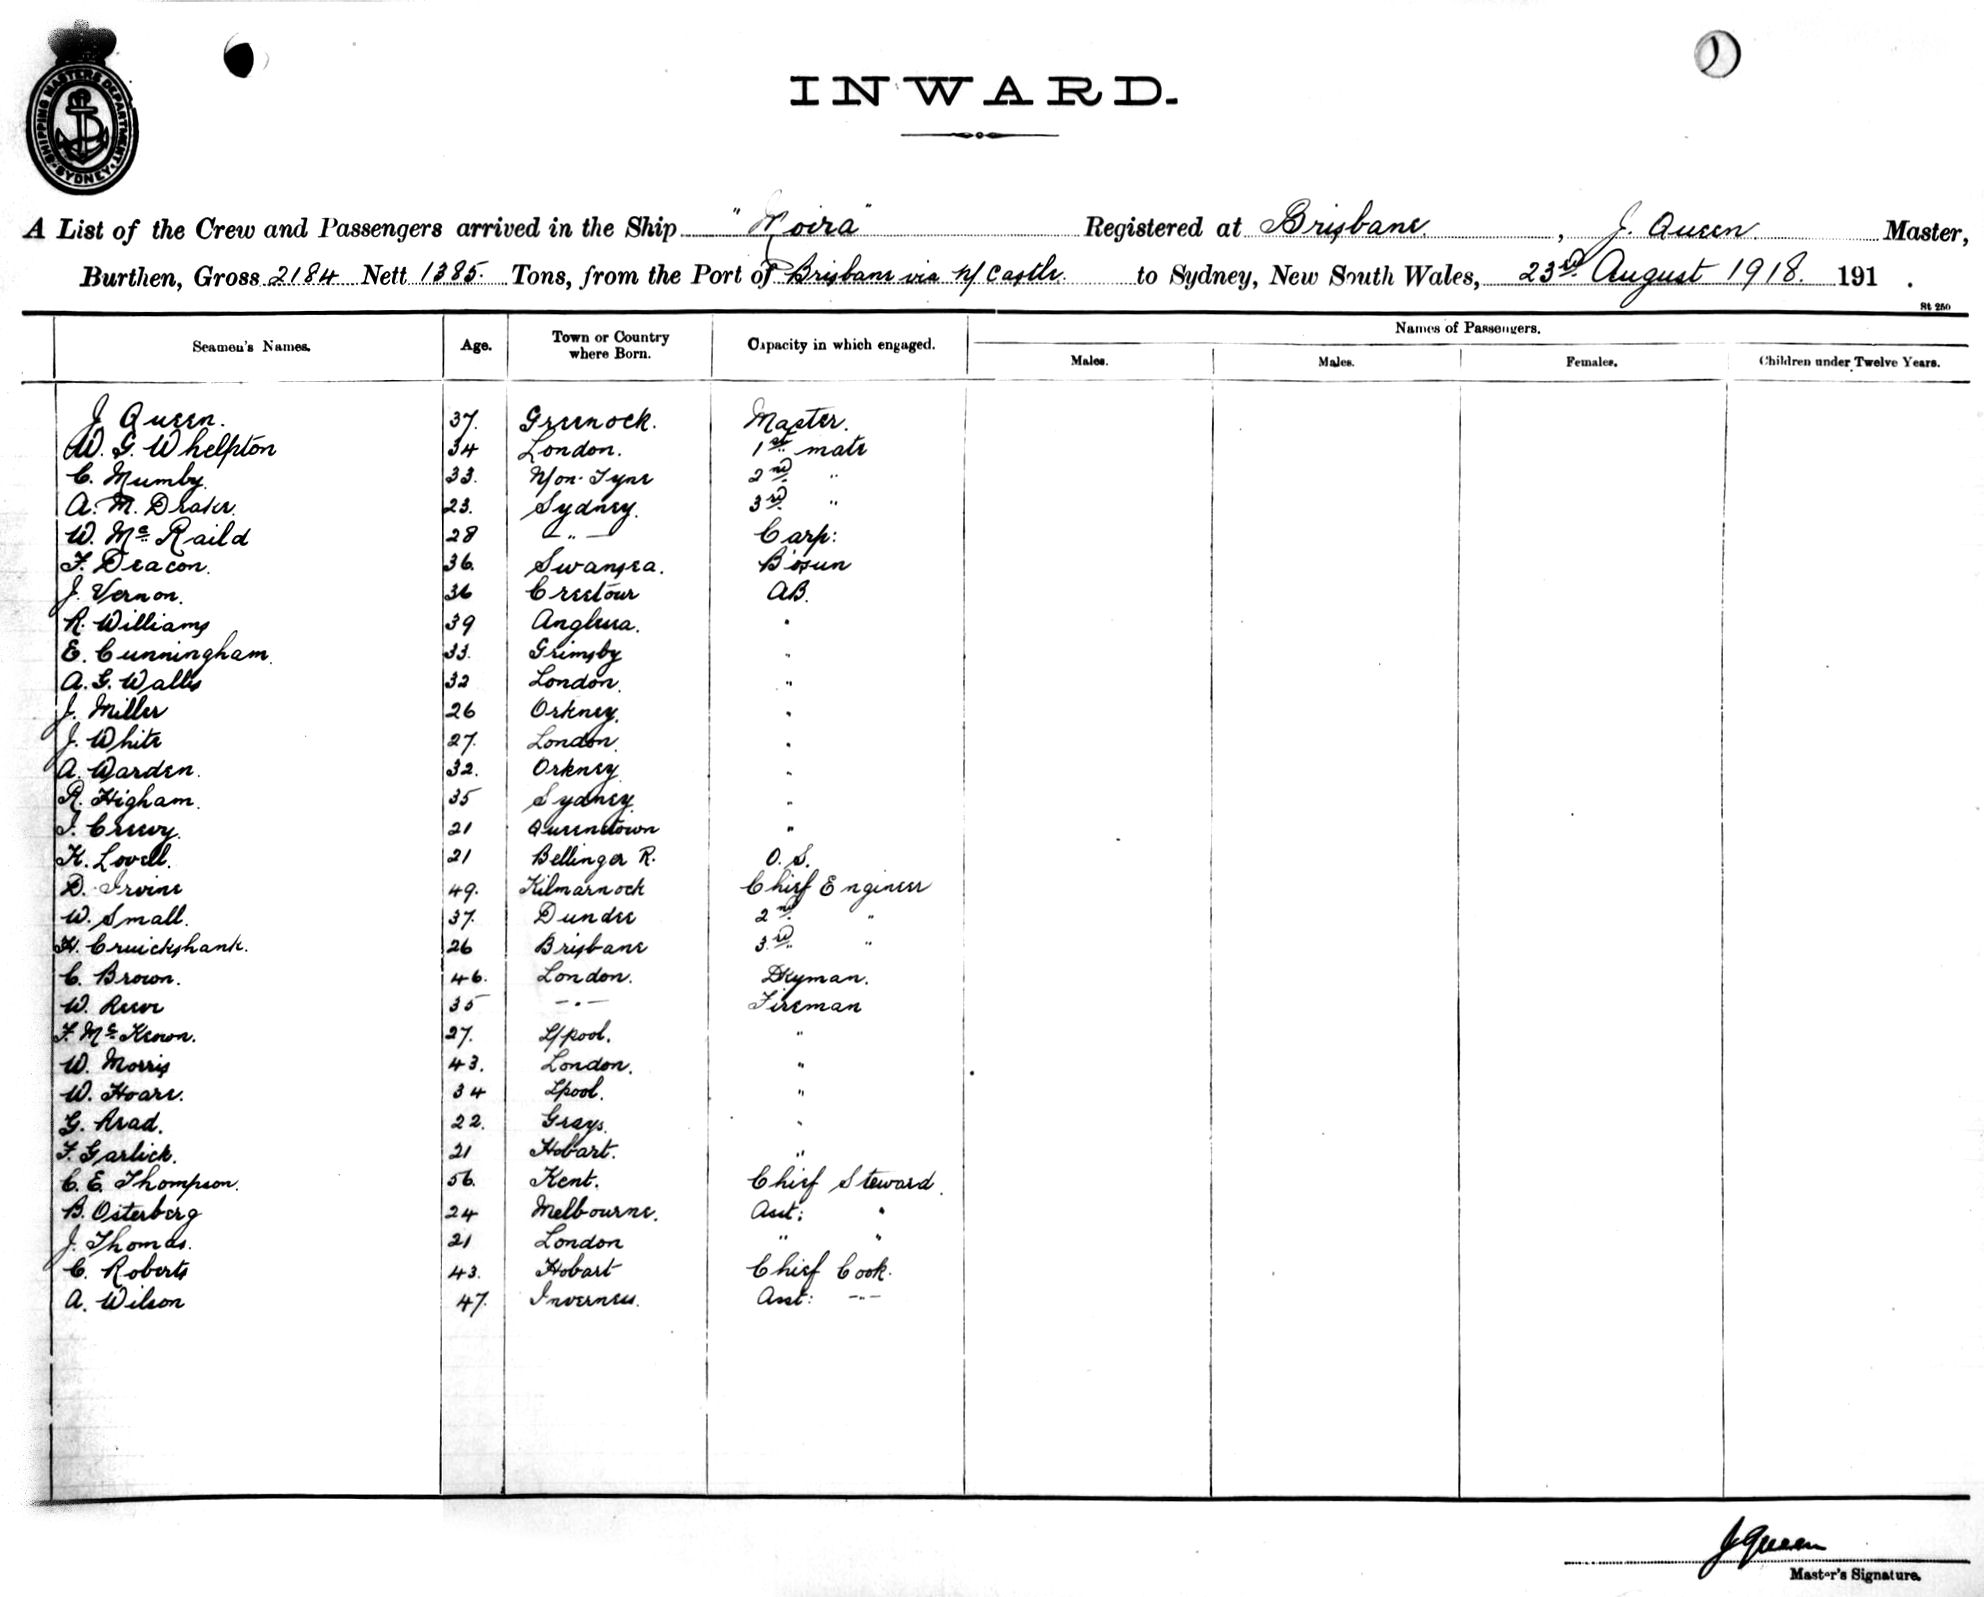 SHIPPING MASTERS DEPARTMENT SYDNEY
1
INWARD.
A List of the Crew and Passengers arrived in the Ship "Moira" Registered at Brisbane, J. Queen Master,
Burthen, Gross 2184 Nett 1385. Tons, from the Port of Brisbane via N/Castle. to Sydney, New South Wales, 23rd August 1918. 191 .
St 250
Seamen's Names. Age. Town or Country where Born. Capacity in which engaged. Names of Passengers.
Males. Males. Females. Children under Twelve Years.
J Queen. 37. Greenock. Master.
W. G. Whelpton 34 London. 1st mate
C. Mumby. 33. N/on-Tyne 2nd "
A. M. Drake. 23. Sydney. 3rd "
W. Mc Raild 28 — " — Carp:
F. Deacon. 36. Swansea. Bosun
J. Vernon. 36 Creetour AB.
R. Williams 39 Anglesea. "
E. Cunningham. 33. Grimsby "
A. G. Wallis 32 London. "
J. Miller 26 Orkney. "
J. White 27. London. "
A. Warden. 32. Orkney "
R. Higham. 35 Sydney "
J. Creevy. 21 Queenstown "
K. Lovell. 21 Bellinger R. O. S.
D. Irvine 49. Kilmarnock Chief Engineer
W. Small. 37. Dundee 2nd "
H. Cruickshank. 26 Brisbane 3rd "
C. Brown. 46. London. Dkyman.
W. 35 — " — Fireman
F. Mc Keown. 27. L/pool. "
W. Morris 43. London. "
W. Hoare. 34 Lpool. "
G. Arad. 22. Grays. "
F. Garlick. 21 Hobart. "
C. E. Thompson. 56. Kent. Chief Steward.
B. Osterberg 24 Melbourne. Asst: "
J. Thomas. 21 London " "
C. Roberts 43. Hobart Chief Cook.
A. Wilson 47. Inverness. Asst: — " —
J Queen
Master's Signature.